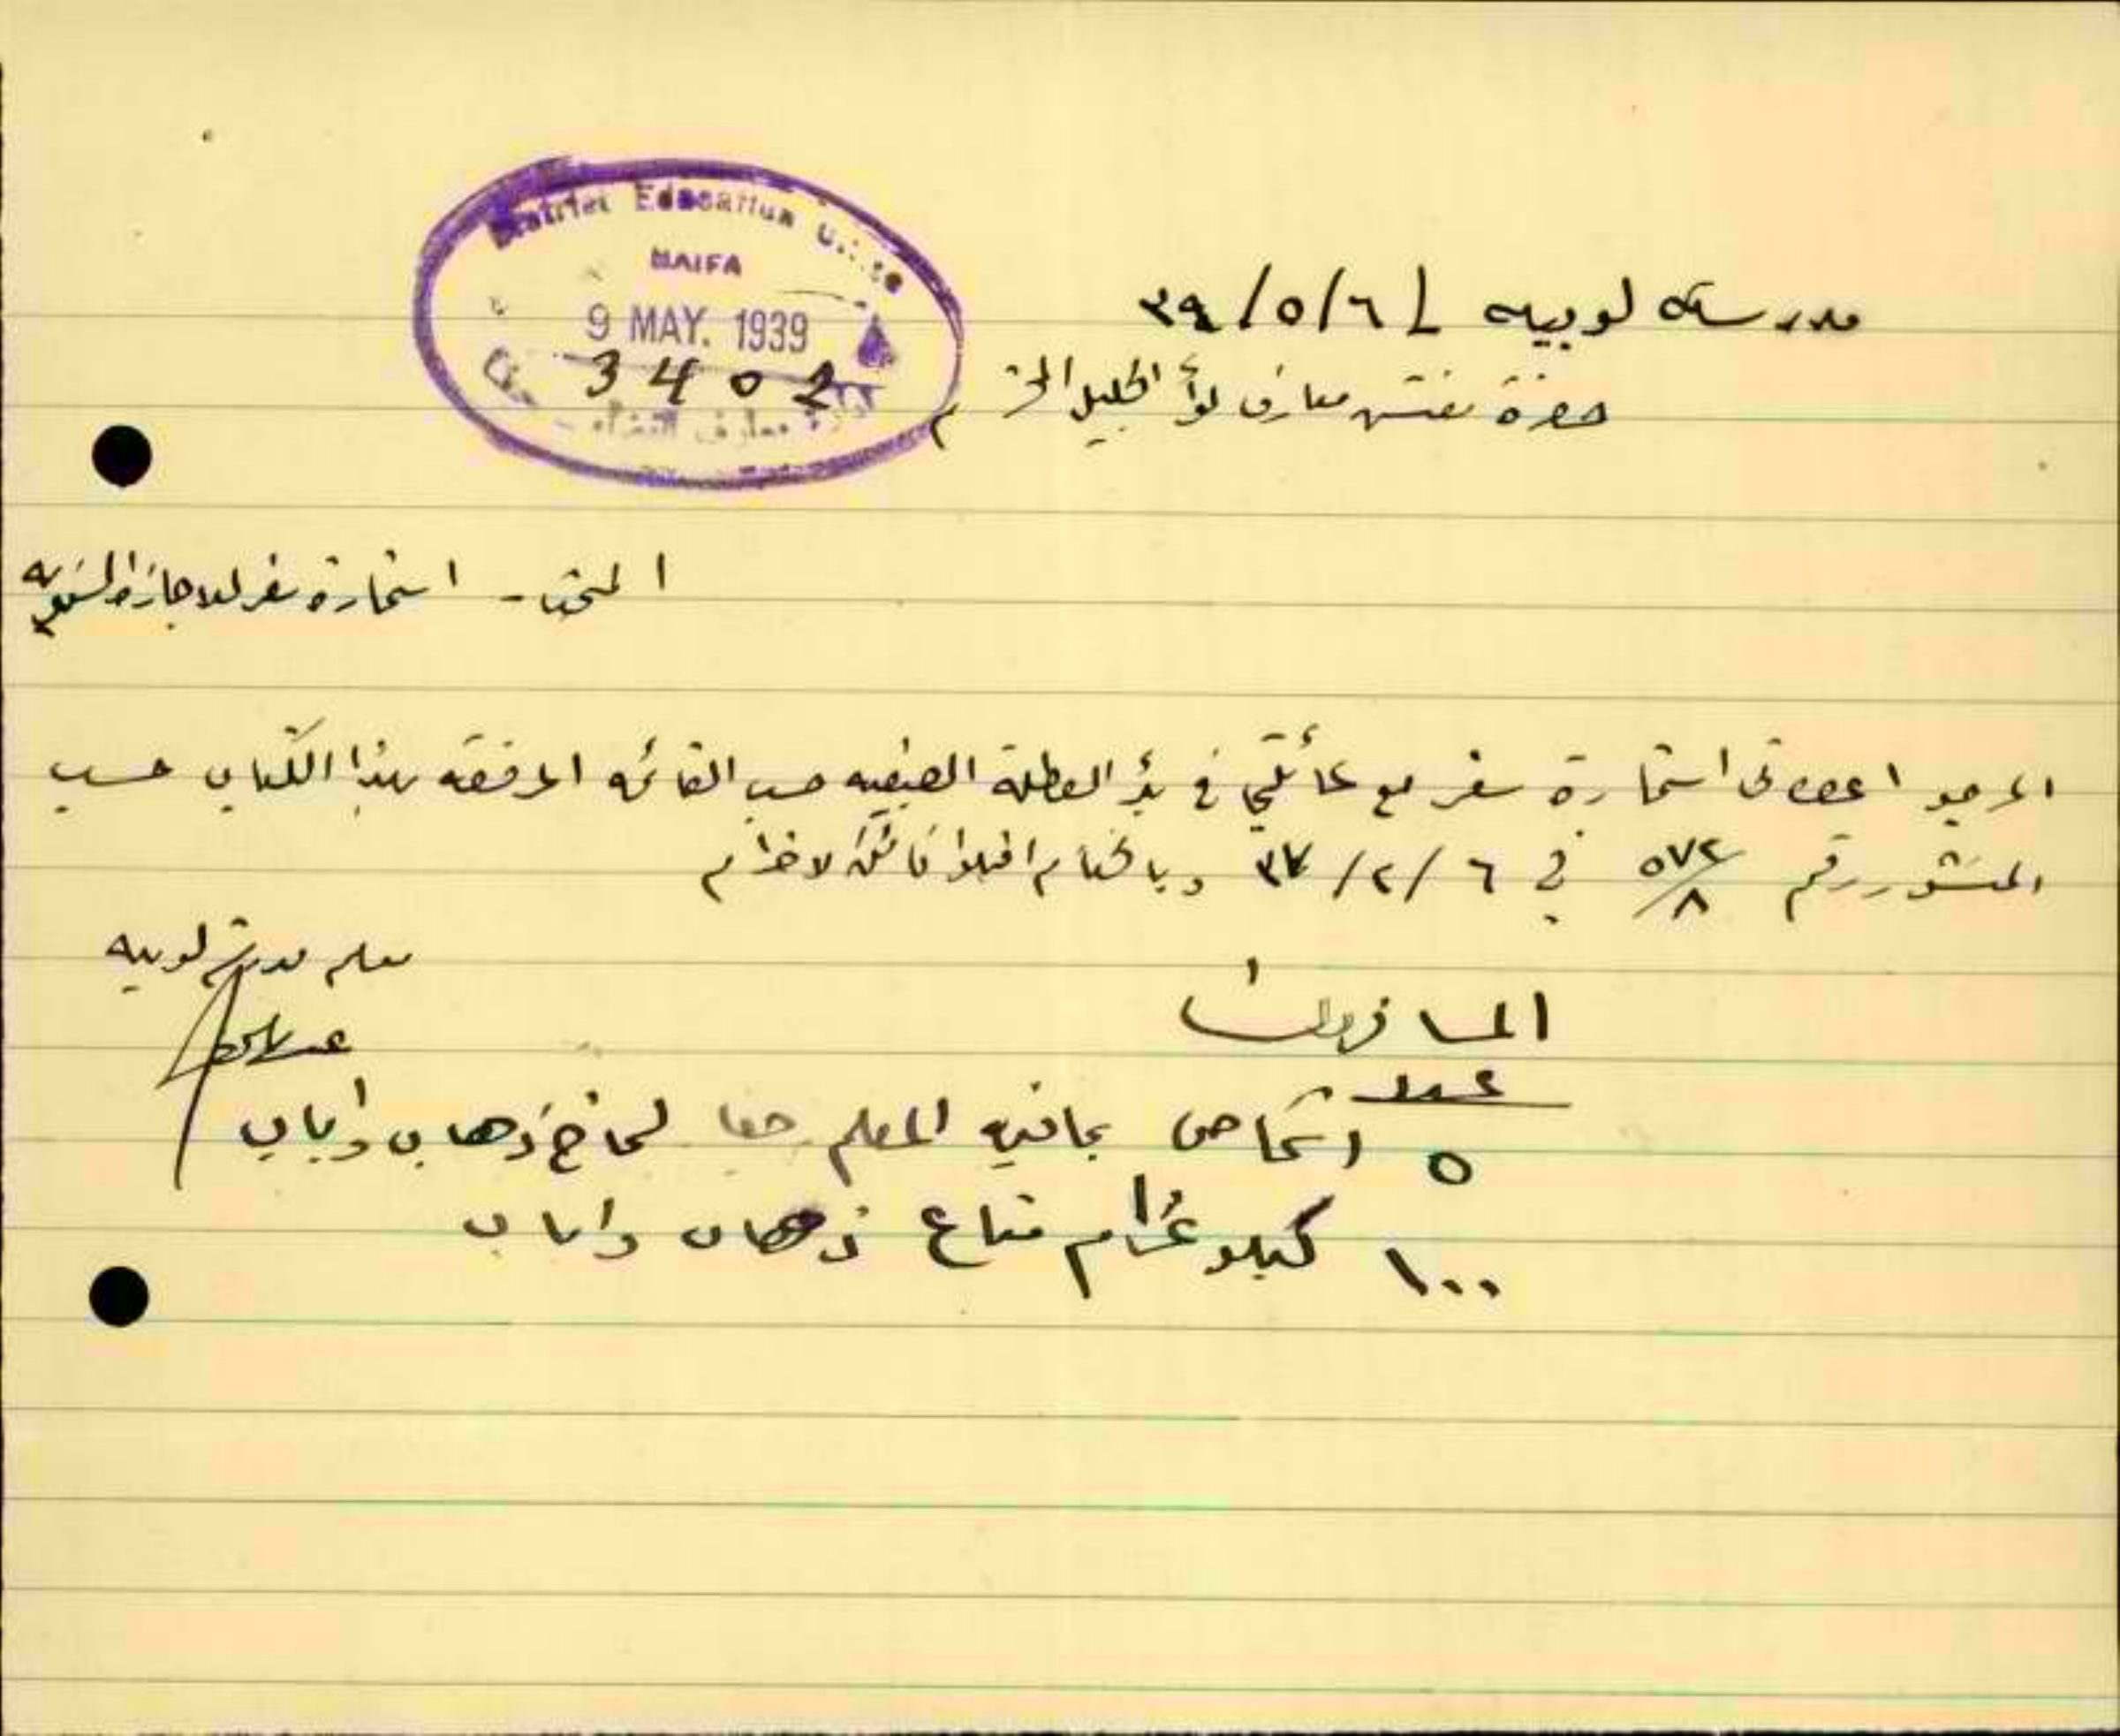 District Education Office
HAIFA
9 MAY. 1939
3402
مدرسة لوبيه / ٦/٥/٣٩
حضرة مفتش معارف لوأ الجليل المحترم
استمارة سفر للاجازة السنويه
المرجو اعطائى استمارة سفر مع عائلتي في بدؤ العطلة الصيفيه حسب القائمه المرفقه بهذا الكتاب حسب
المنشور رقم ٥٧٢/٨ في ٦/٢/٣٧ وبالختام اقبلوا فائق الاحترام
معلم مدرسة لوبيه
المسافرون
عدد
٥ اشخاص بما فيه المعلم ذهاب واياب
١٠٠ كيلو غرام متاع ذهاب واياب